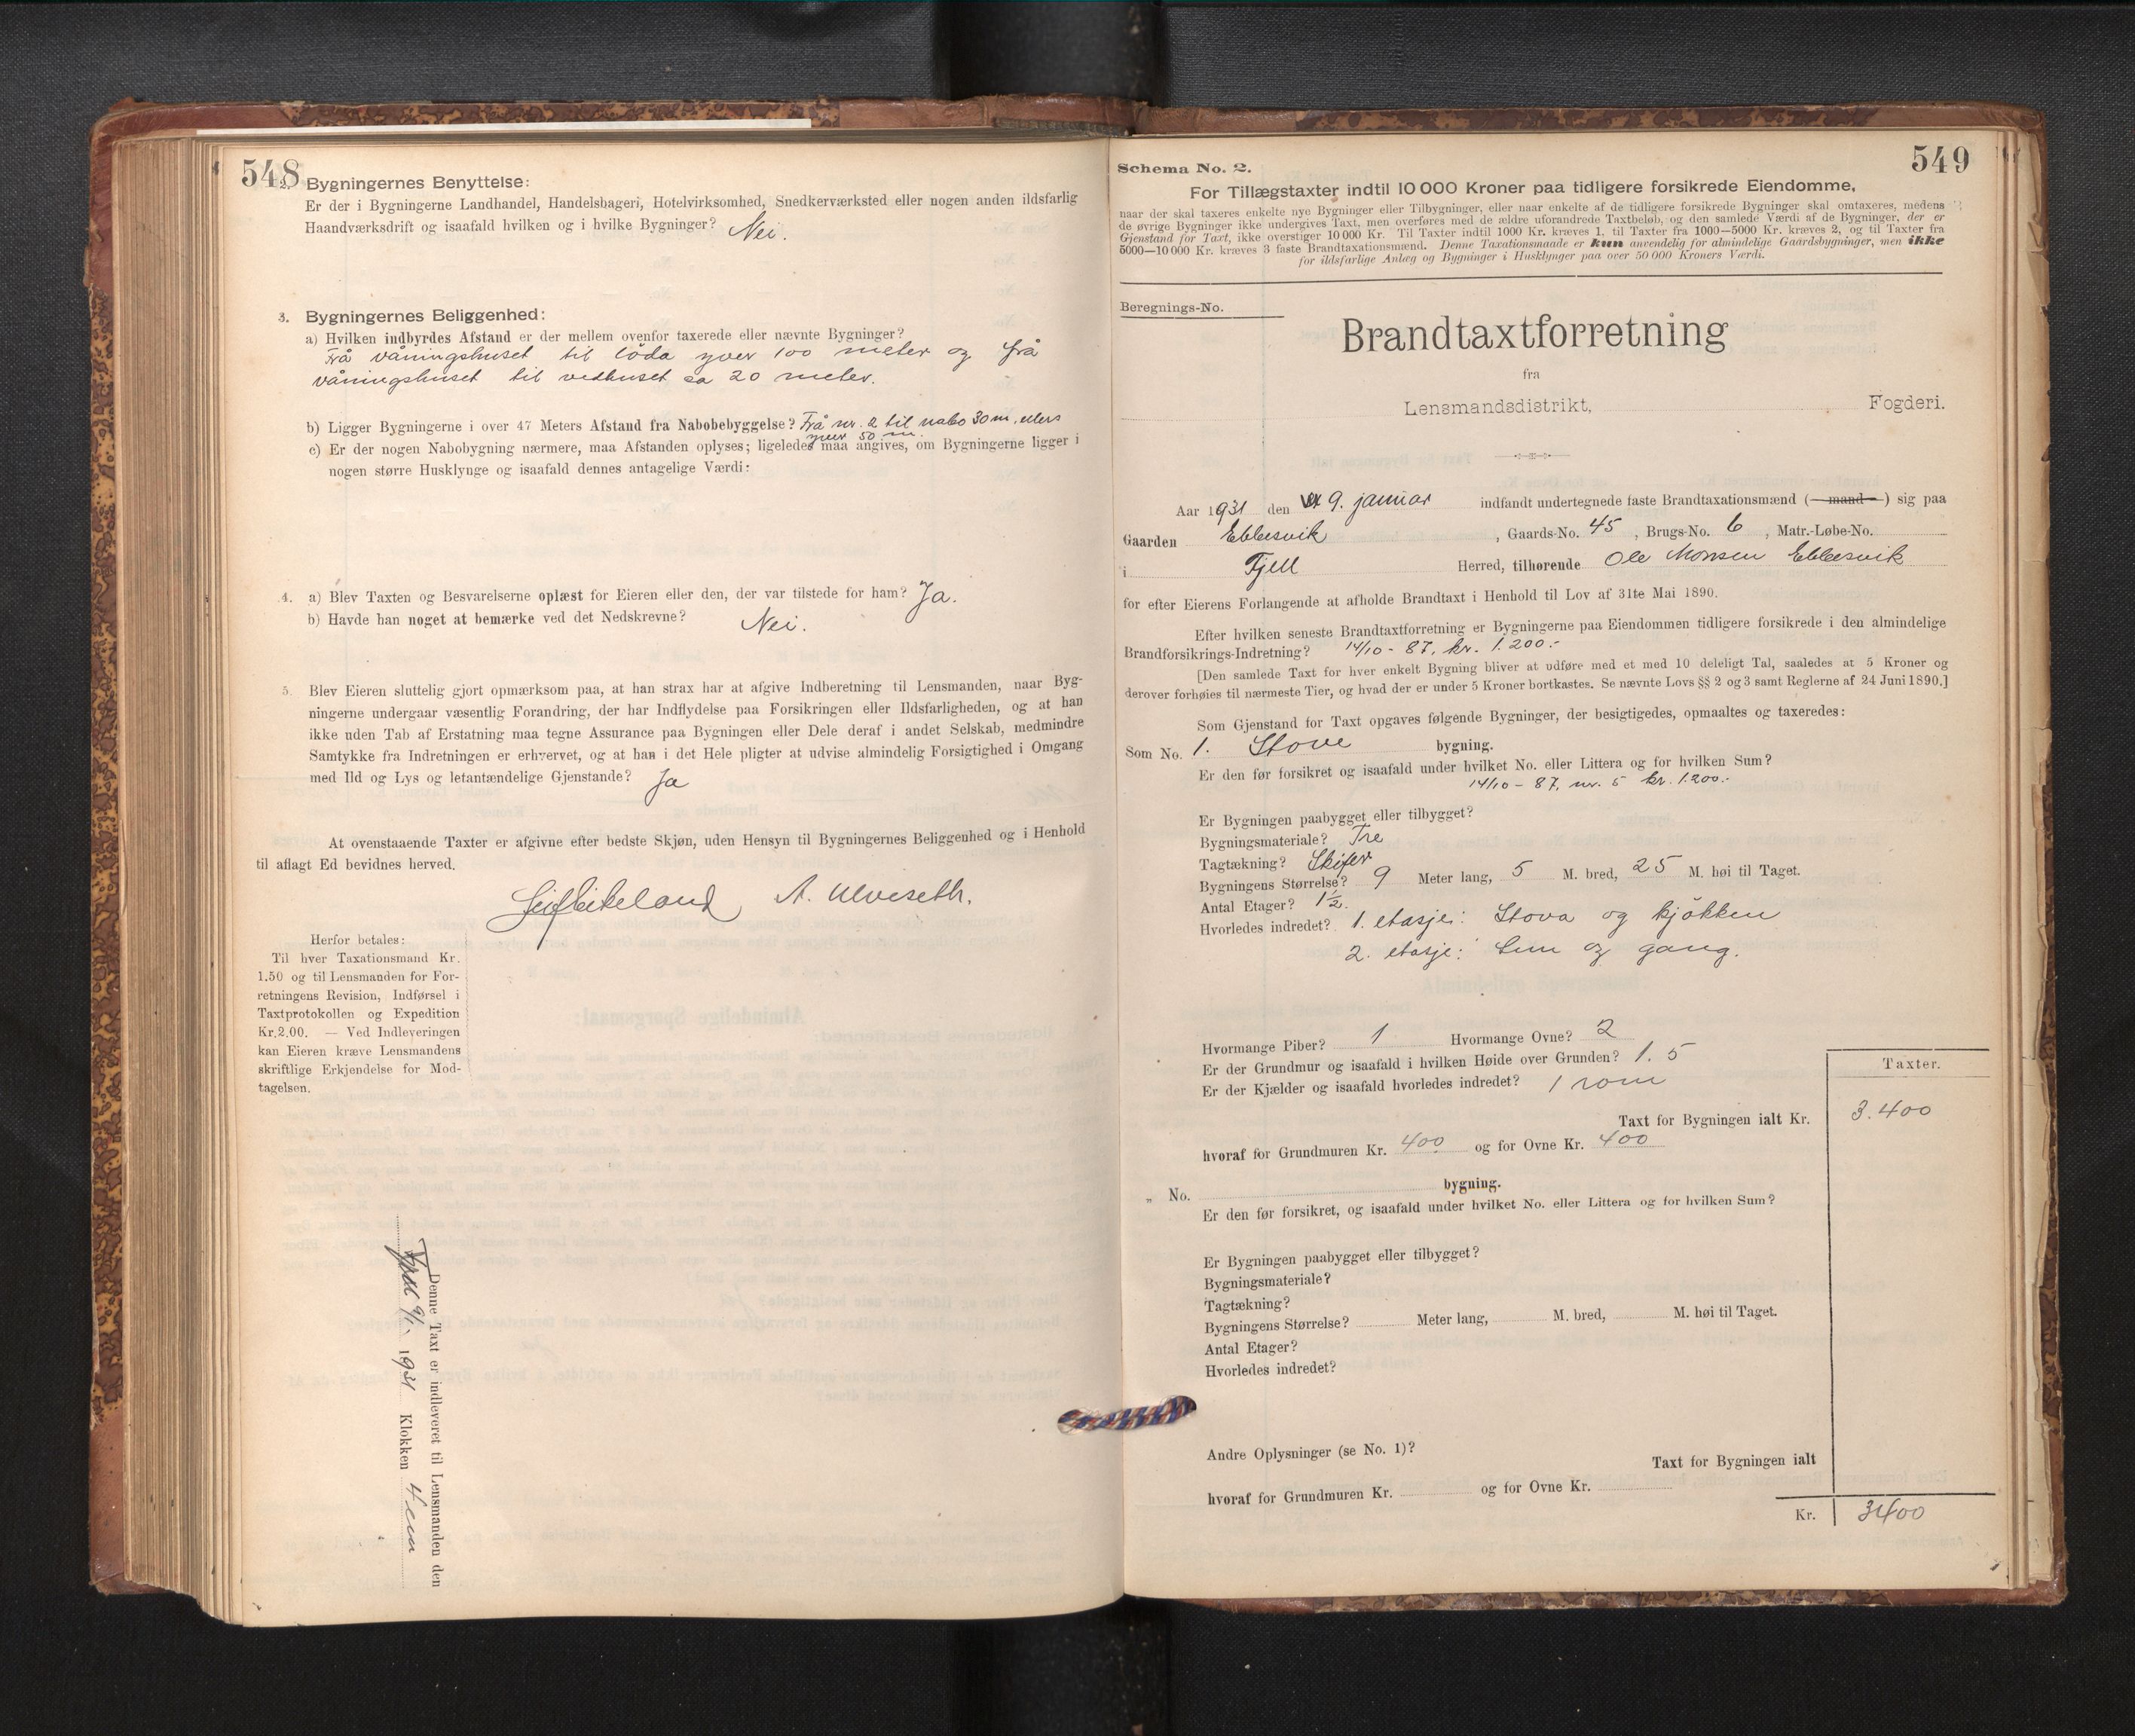 548
2. Bygningernes Benyttelse:
Er der i Bygningerne Landhandel, Handelsbageri, Hotelvirksomhed, Snedkerværksted eller nogen anden ildsfarlig
Haandværksdrift og isaafald hvilken og i hvilke Bygninger? Nei.
3. Bygningernes Beliggenhed:
a) Hvilken indbyrdes Afstand er der mellem ovenfor taxerede eller nævnte Bygninger?
Frå våningshuset til löda yver 100 meter og frå
våningshuset til vedhuset ca 20 meter.
b) Ligger Bygningerne i over 47 Meters Afstand fra Nabobebyggelse? Frå nr. 2 til nabo 30 m. ellers
yver 50 m.
c) Er der nogen Nabobygning nærmere, maa Afstanden oplyses; ligeledes maa angives, om Bygningerne ligger i
nogen større Husklynge og isaafald dennes antagelige Værdi:
4. a) Blev Taxten og Besvarelserne oplæst for Eieren eller den, der var tilstede for ham? Ja.
b) Havde han noget at bemærke ved det Nedskrevne? Nei.
5. Blev Eieren sluttelig gjort opmærksom paa, at han strax har at afgive Indberetning til Lensmanden, naar Byg-
ningerne undergaar væsentlig Forandring, der har Indflydelse paa Forsikringen eller Ildsfarligheden, og at han
ikke uden Tab af Erstatning maa tegne Assurance paa Bygningen eller Dele deraf i andet Selskab, medmindre
Samtykke fra Indretningen er erhvervet, og at han i det Hele pligter at udvise almindelig Forsigtighed i Omgang
med Ild og Lys og letantændelige Gjenstande? Ja
At ovenstaaende Taxter er afgivne efter bedste Skjøn, uden Hensyn til Bygningernes Beliggenhed og i Henhold
til aflagt Ed bevidnes herved.
A. Ulveseth.
Herfor betales:
Til hver Taxationsmand Kr.
1.50 og til Lensmanden for For-
retningens Revision, Indførsel i
Taxtprotokollen og Expedition
Kr. 2.00. — Ved Indleveringen
kan Eieren kræve Lensmandens
skriftlige Erkjendelse for Mod-
tagelsen.
Denne Taxt er indleveret til Lensmanden den
Fjell 9/1 1931 Klokken 4 em
549
Schema No. 2.
For Tillægstaxter indtil 10 000 Kroner paa tidligere forsikrede Eiendomme,
naar der skal taxeres enkelte nye Bygninger eller Tilbygninger, eller naar enkelte af de tidligere forsikrede Bygninger skal omtaxeres, medens
de øvrige Bygninger ikke undergives Taxt, men overføres med de ældre uforandrede Taxtbeløb, og den samlede Værdi af de Bygninger, der er
Gjenstand for Taxt, ikke overstiger 10 000 Kr. Til Taxter indtil 1000 Kr. kræves 1, til Taxter fra 1000—5000 Kr. kræves 2, og til Taxter fra
5000—10 000 Kr. kræves 3 faste Brandtaxationsmænd. Denne Taxationsmaade er kun anvendelig for almindelige Gaardsbygninger, men ikke
for ildsfarlige Anlæg og Bygninger i Husklynger paa over 50 000 Kroners Værdi.
Beregnings-No.
Brandtaxtforretning
fra
Lensmandsdistrikt, Fogderi.
Aar 1931 den 9. januar indfandt undertegnede faste Brandtaxationsmænd (—mand—) sig paa
Gaarden Ebbesvik, Gaards-No. 45, Brugs-No. 6, Matr.-Løbe-No.
i Fjell Herred, tilhørende Ole Monsen Ebbesvik
for efter Eierens Forlangende at afholde Brandtaxt i Henhold til Lov af 31te Mai 1890.
Efter hvilken seneste Brandtaxtforretning er Bygningerne paa Eiendommen tidligere forsikrede i den almindelige
Brandforsikrings-Indretning? 14/10 - 87, kr. 1.200.-
[Den samlede Taxt for hver enkelt Bygning bliver at udføre med et med 10 deleligt Tal, saaledes at 5 Kroner og
derover forhøies til nærmeste Tier, og hvad der er under 5 Kroner bortkastes. Se nævnte Lovs §§ 2 og 3 samt Reglerne af 24 Juni 1890.]
Som Gjenstand for Taxt opgaves følgende Bygninger, der besigtigedes, opmaaltes og taxeredes:
Som No. 1. Stove bygning.
Er den før forsikret og isaafald under hvilket No. eller Littera og for hvilken Sum?
14/10 - 87, nr. 5 kr. 1.200.-
Er Bygningen paabygget eller tilbygget?
Bygningsmateriale? Tre
Tagtækning? Skifer
Bygningens Størrelse? 9 Meter lang, 5 M. bred, 25 M. høi til Taget.
Antal Etager? 1 1/2.
Hvorledes indredet? 1. etasje: Stova og kjökken
2. etasje: Lem og gang.
Hvormange Piber? 1 Hvormange Ovne? 2
Er der Grundmur og isaafald i hvilken Høide over Grunden? 1.5
Er der Kjælder og isaafald hvorledes indredet? 1 rom
Taxter.
Taxt for Bygningen ialt Kr. 3.400
hvoraf for Grundmuren Kr. 400 og for Ovne Kr. 400
„ No. bygning.
Er den før forsikret, og isaafald under hvilket No. eller Littera og for hvilken Sum?
Er Bygningen paabygget eller tilbygget?
Bygningsmateriale?
Tagtækning?
Bygningens Størrelse? Meter lang, M. bred, M. høi til Taget.
Antal Etager?
Hvorledes indredet?
Andre Oplysninger (se No. 1)?
Taxt for Bygningen ialt
hvoraf for Grundmuren Kr. og for Ovne Kr.
Kr. 3400